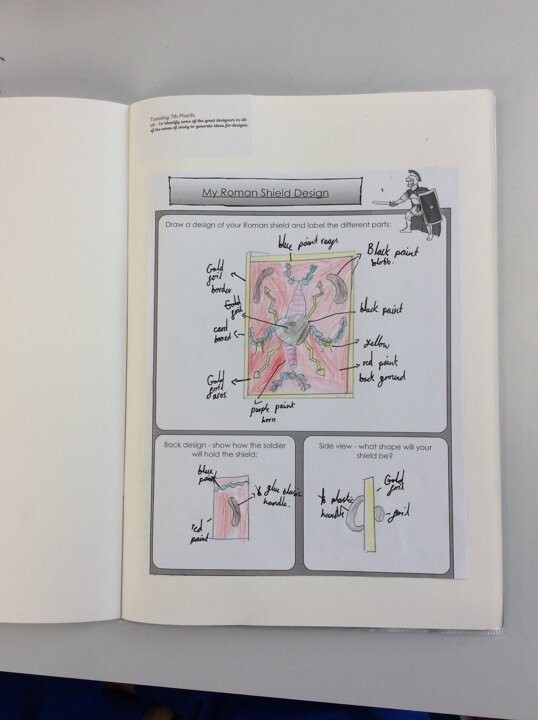 Tuesday 7th March
LO - To identify some of the great designers in all
of the areas of study to generate ideas for designs.
My Roman Shield Design
Draw a design of your Roman shield and label the different parts:
blue paint rays
Black paint
blobs.
Gold
foil
border
Gold
foil
card
board
black paint
yellow
red paint
back ground
Gold
foil
purple paint
horn
Back design - show how the soldier
will hold the shield:
blue
paint
glue plastic
handle.
red
paint
Side view - what shape will your
shield be?
Gold
foil
plastic
handle
foil